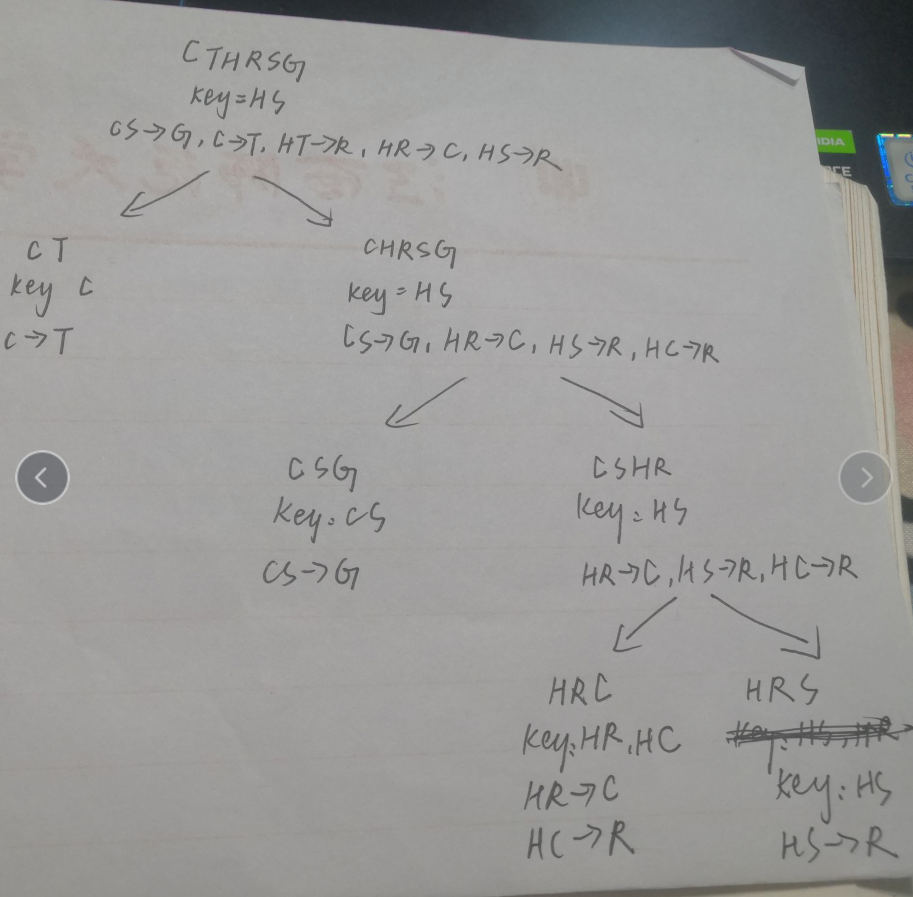 CTHRSG
key=HS
CS→G, C→T, HT→R, HR→C, HS→R
CT
key C
C→T
CHRSG
key=HS
CS→G, HR→C, HS→R, HC→R
CSG
key: CS
CS→G
CSHR
key: HS
HR→C, HS→R, HC→R
HRC
key: HR, HC
HR→C
HC→R
HRS
key: HS, HR
key: HS
HS→R
IDIA
CE